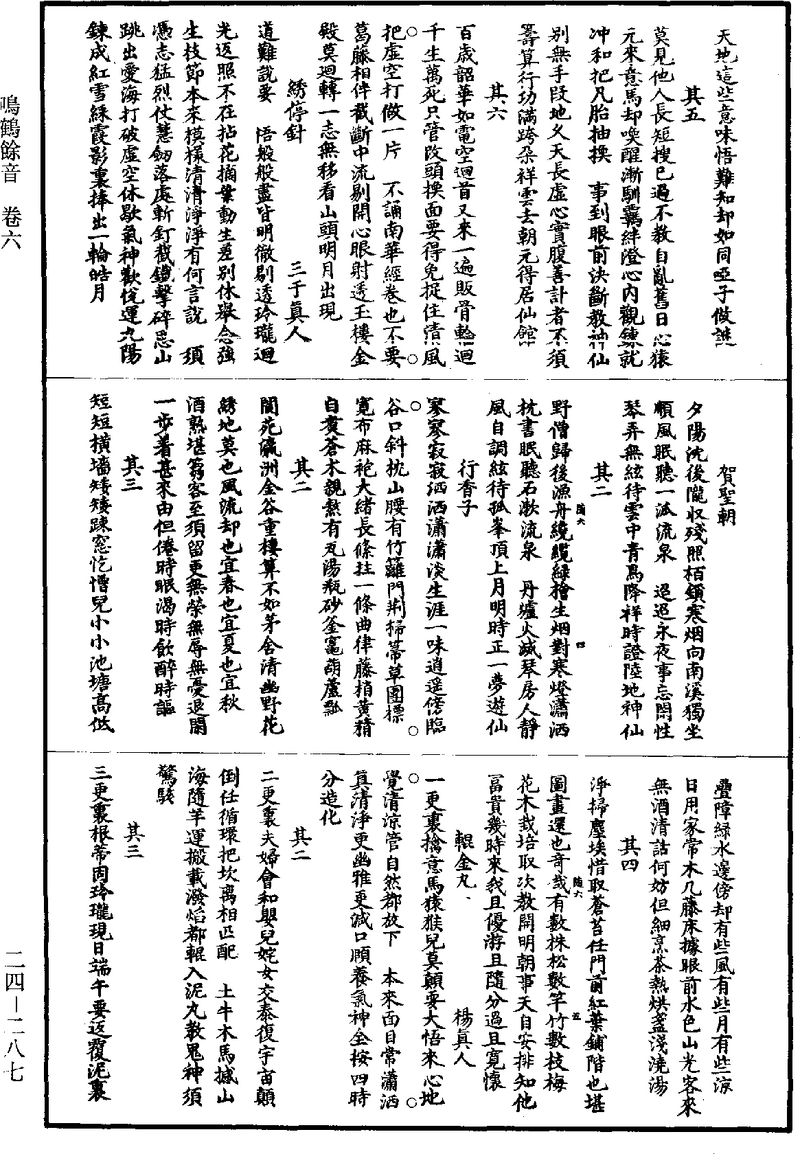 鳴鶴餘音　卷六
天地這些意味悟難知却如同啞子做謎
其五
莫見他人長短搜已過不教自亂舊日心猿
元來意馬却喚醒漸馴羈絆澄心內觀鍊就
冲和把凡胎抽換　事到眼前決斷教神仙
別無手段地久天長虛心實腹善計者不須
籌算行功滿跨朶祥雲去朝元得居仙館
其六
百歲韶華如電空迴首又來一遍販骨輪迴
千生萬死只管改頭換面要得免捉住清風
把虛空打做一片　不誦南華經卷也不要
葛藤相伴截斷中流剔開心眼射透玉樓金
殿莫迴轉一志無移看山頭明月出現
綉停針　三于真人
道難說要　悟般般盡皆明徹剔透玲瓏迴
光返照不在拈花摘葉動生差別休舉念強
生枝節本來模樣清清淨淨有何言說　須
憑志猛烈仗慧劒落處斬釘截鐵擊碎惡山
跳出愛海打破虛空休歇氣神歡悅運九陽
鍊成紅雪綵霞影裏捧出一輪皓月
賀聖朝
夕陽沈後隴收殘照栢鎖寒烟向南溪獨坐
順風眠聽一派流泉　迢迢永夜事忘閑性
琴弄無絃待雲中青鳥降祥時證陸地神仙
其二
野僧歸後漁舟纔纜綠檜生烟對寒燈瀟洒
枕書眠聽石漱流泉　丹爐火滅琴房人靜
風自調絃待孤峯頂上月明時正一夢遊仙
行香子
寥寥寂寂洒洒瀟瀟淡生涯一味逍遥傍臨
谷口斜枕山腰有竹籬門荆掃箒草團標
寬布麻袍大緒長條拄一條曲律藤梢黄精
自煑蒼木親熬有瓦湯瓶砂釜竈葫蘆瓢
其二
閬苑瀛洲金谷重樓算不如茅舍清幽野花
綉地莫也風流却也宜春也宜夏也宜秋
酒熟堪篘客至須留更無榮無辱無憂退閑
一步着甚來由但倦時眠渴時飲醉時謳
其三
短短橫墻矮矮踈窓忔憎兒小小池塘高低
疊障綠水邊傍却有些風有些月有些涼
日用家常木几藤床據眼前水色山光客來
無酒清話何妨但細烹茶熱烘盞淺澆湯
其四
淨掃塵埃惜取蒼苔任門前紅葉鋪階也堪
圖畫還也奇哉有數株松數竿竹數枝梅
花木栽培取次教開明朝事天自安排知他
冨貴幾時來我且優游且隨分過且寬懷
輥金丸　楊真人
一更裏擒意馬猿猴兒莫顛耍大悟來心地
覺清涼管自然都放下　本來面目常瀟洒
真清淨更幽雅更減口頤養氣神全按四時
分造化
其二
二更裏夫婦會和嬰兒姹女交泰復宇宙顛
倒任循環把坎离相匹配　土牛木馬撼山
海隨羊運搬載潑焰都輥入泥丸教鬼神須
驚駭
其三
三更裏根蒂固玲瓏現日端午要返覆泥裏
二四—二八七